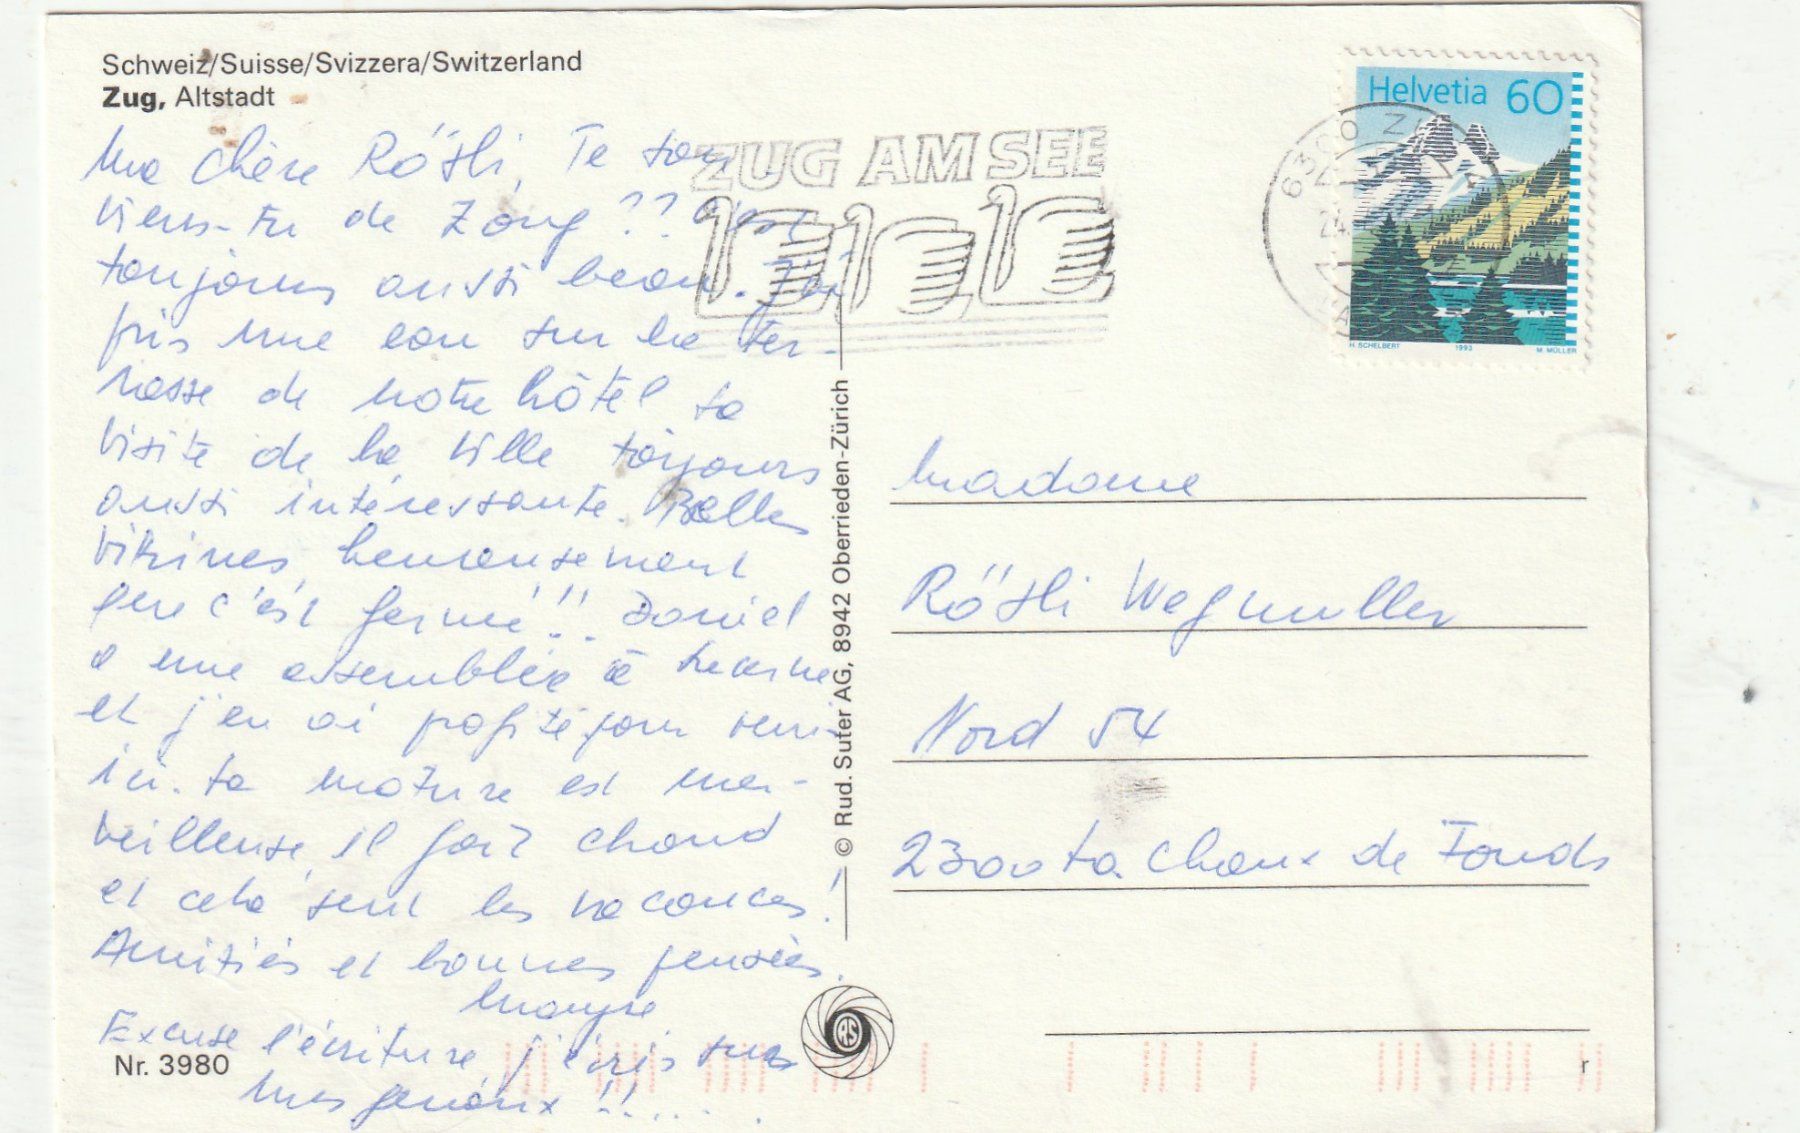 Schweiz/Suisse/Svizzera/Switzerland
Zug, Altstadt
Ma chère Rösli, Te sou-
viens-tu de Zoug ?? C'est
toujours aussi beau. J'ai
pris une eau sur la ter-
rasse de notre hôtel la
visite de la ville toujours
aussi intéressante. Belles
vitrines, heureusement
que c'est fermé!! Daniel
a une assemblée à Lucerne
et j'en ai profité pour venir
ici. La nature est mer-
veilleuse, il fait chaud
et cela sent les vacances!
Amitiés et bonnes pensées.
Maryse
Excuse l'écriture, j'écris sur
mes genoux !!.....
Nr. 3980
© Rud. Suter AG, 8942 Oberrieden-Zürich
RS
ZUG AM SEE
6300 ZUG
24.
Helvetia 60
H. SCHELBERT 1993 M. MÜLLER
Madame
Rösli Wegmuller
Nord 54
2300 La Chaux de Fonds
r